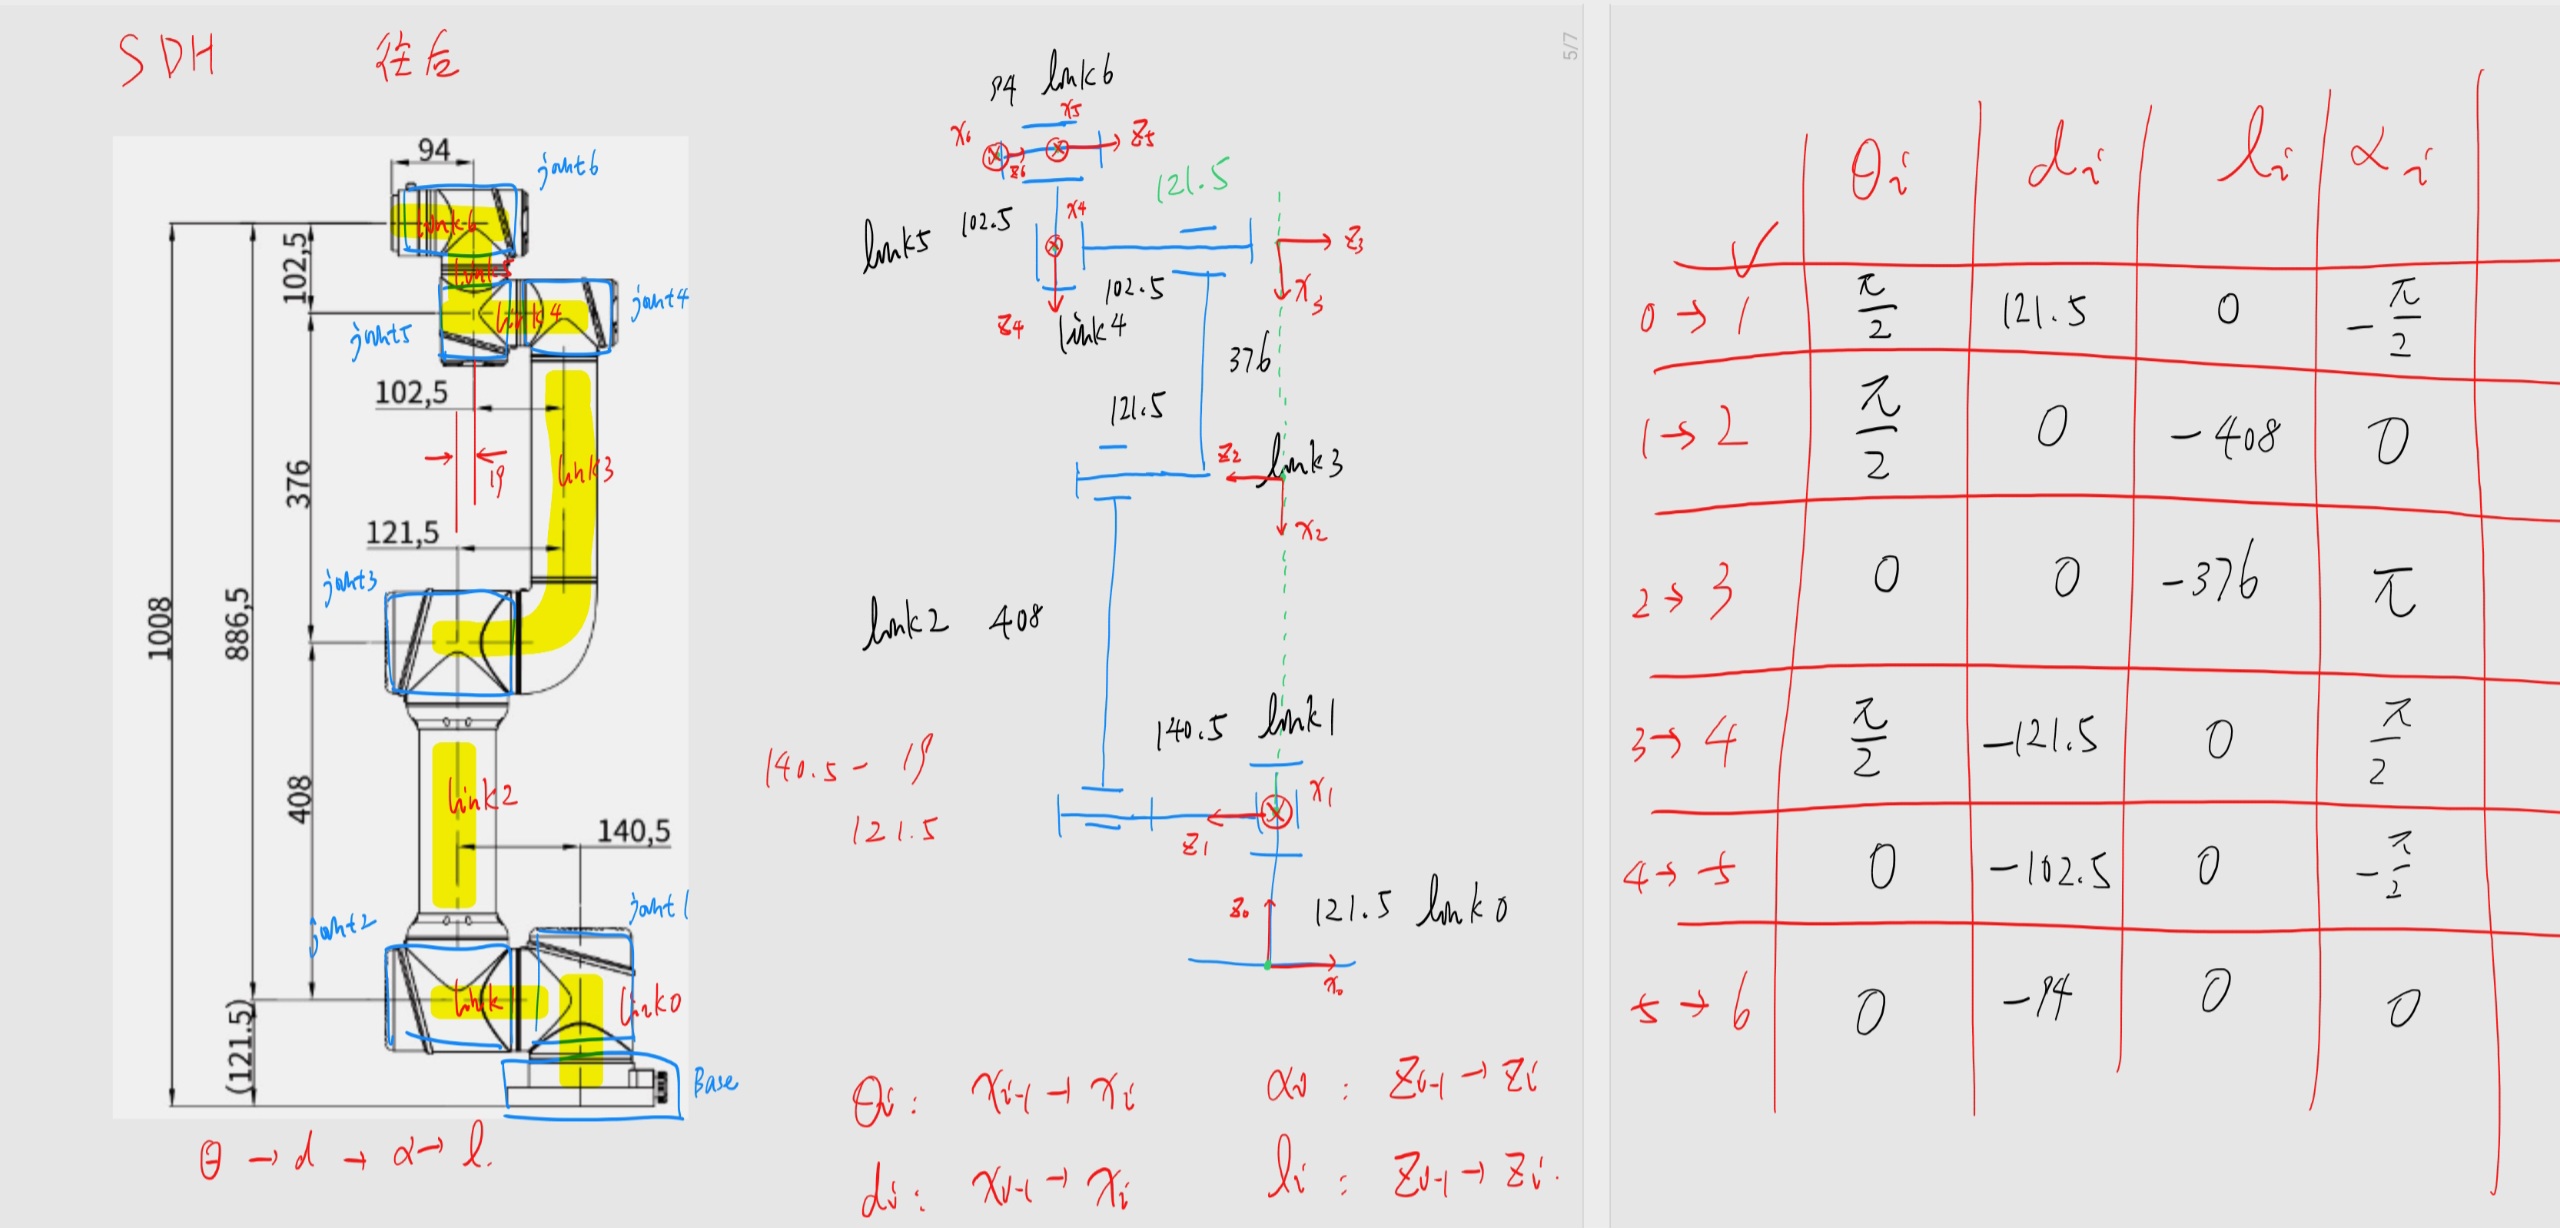 SDH 往后
94
joint6
link6
102,5
link5
joint4
link4
joint5
102,5
19
376
link3
121,5
joint3
1008
886,5
408
link2
140,5
joint2
joint1
link1
link0
(121.5)
Base
θ → d → α → l.
94 link6
x5
x6
z5
z6
121.5
link5 102.5
x4
z3
102.5
x3
z4
link4
376
121.5
z2
link3
x2
link2 408
140.5 link1
140.5 - 19
x1
121.5
z1
z0
121.5 link0
x0
θi : xi-1 → xi
αi : zi-1 → zi
di : xi-1 → xi
li : zi-1 → zi.
5/7
θi di li αi
✓
0 → 1 π/2 121.5 0 -π/2
1 → 2 π/2 0 -408 0
2 → 3 0 0 -376 π
3 → 4 π/2 -121.5 0 π/2
4 → 5 0 -102.5 0 -π/2
5 → 6 0 -94 0 0